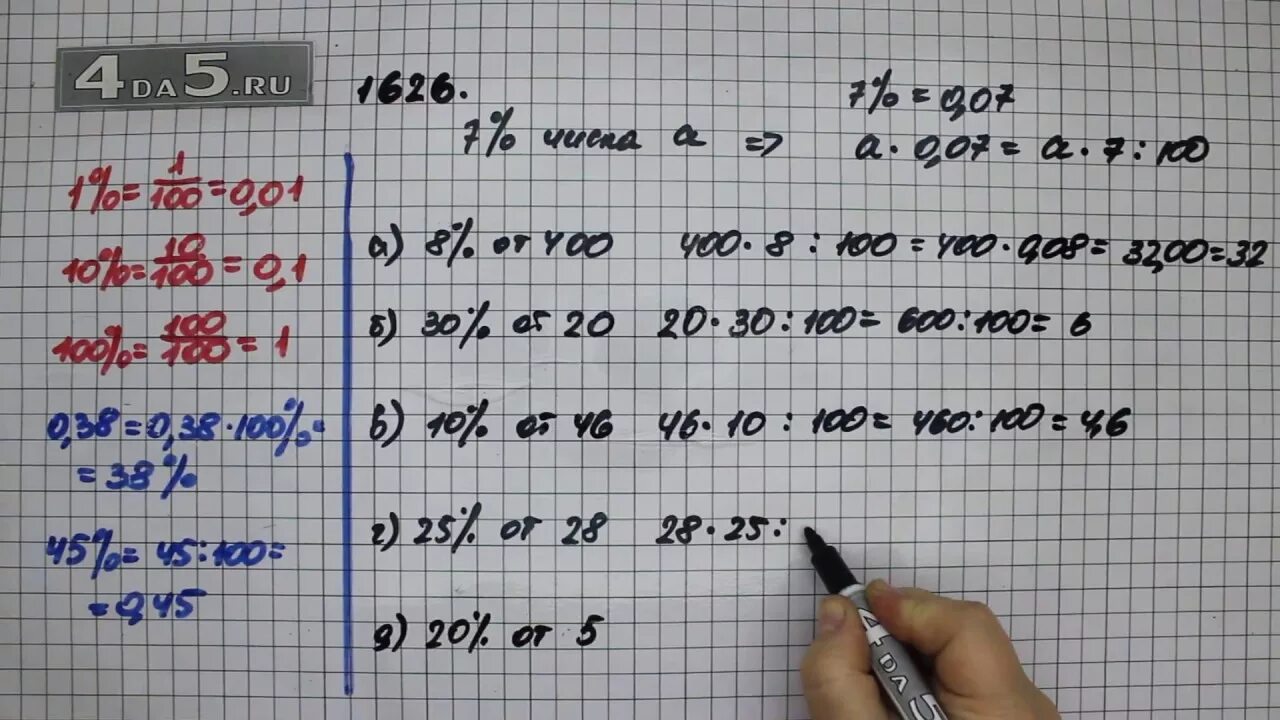 4DA5.RU
1626.
7% = 0,07
7% числа a => a · 0,07 = a · 7 : 100
1% = 1/100 = 0,01
10% = 10/100 = 0,1
100% = 100/100 = 1
0,38 = 0,38 · 100% =
= 38%
45% = 45 : 100 =
= 0,45
а) 8% от 400 400 · 8 : 100 = 400 · 0,08 = 32,00 = 32
б) 30% от 20 20 · 30 : 100 = 600 : 100 = 6
в) 10% от 46 46 · 10 : 100 = 460 : 100 = 4,6
г) 25% от 28 28 · 25 :
д) 20% от 5
4 DA 5